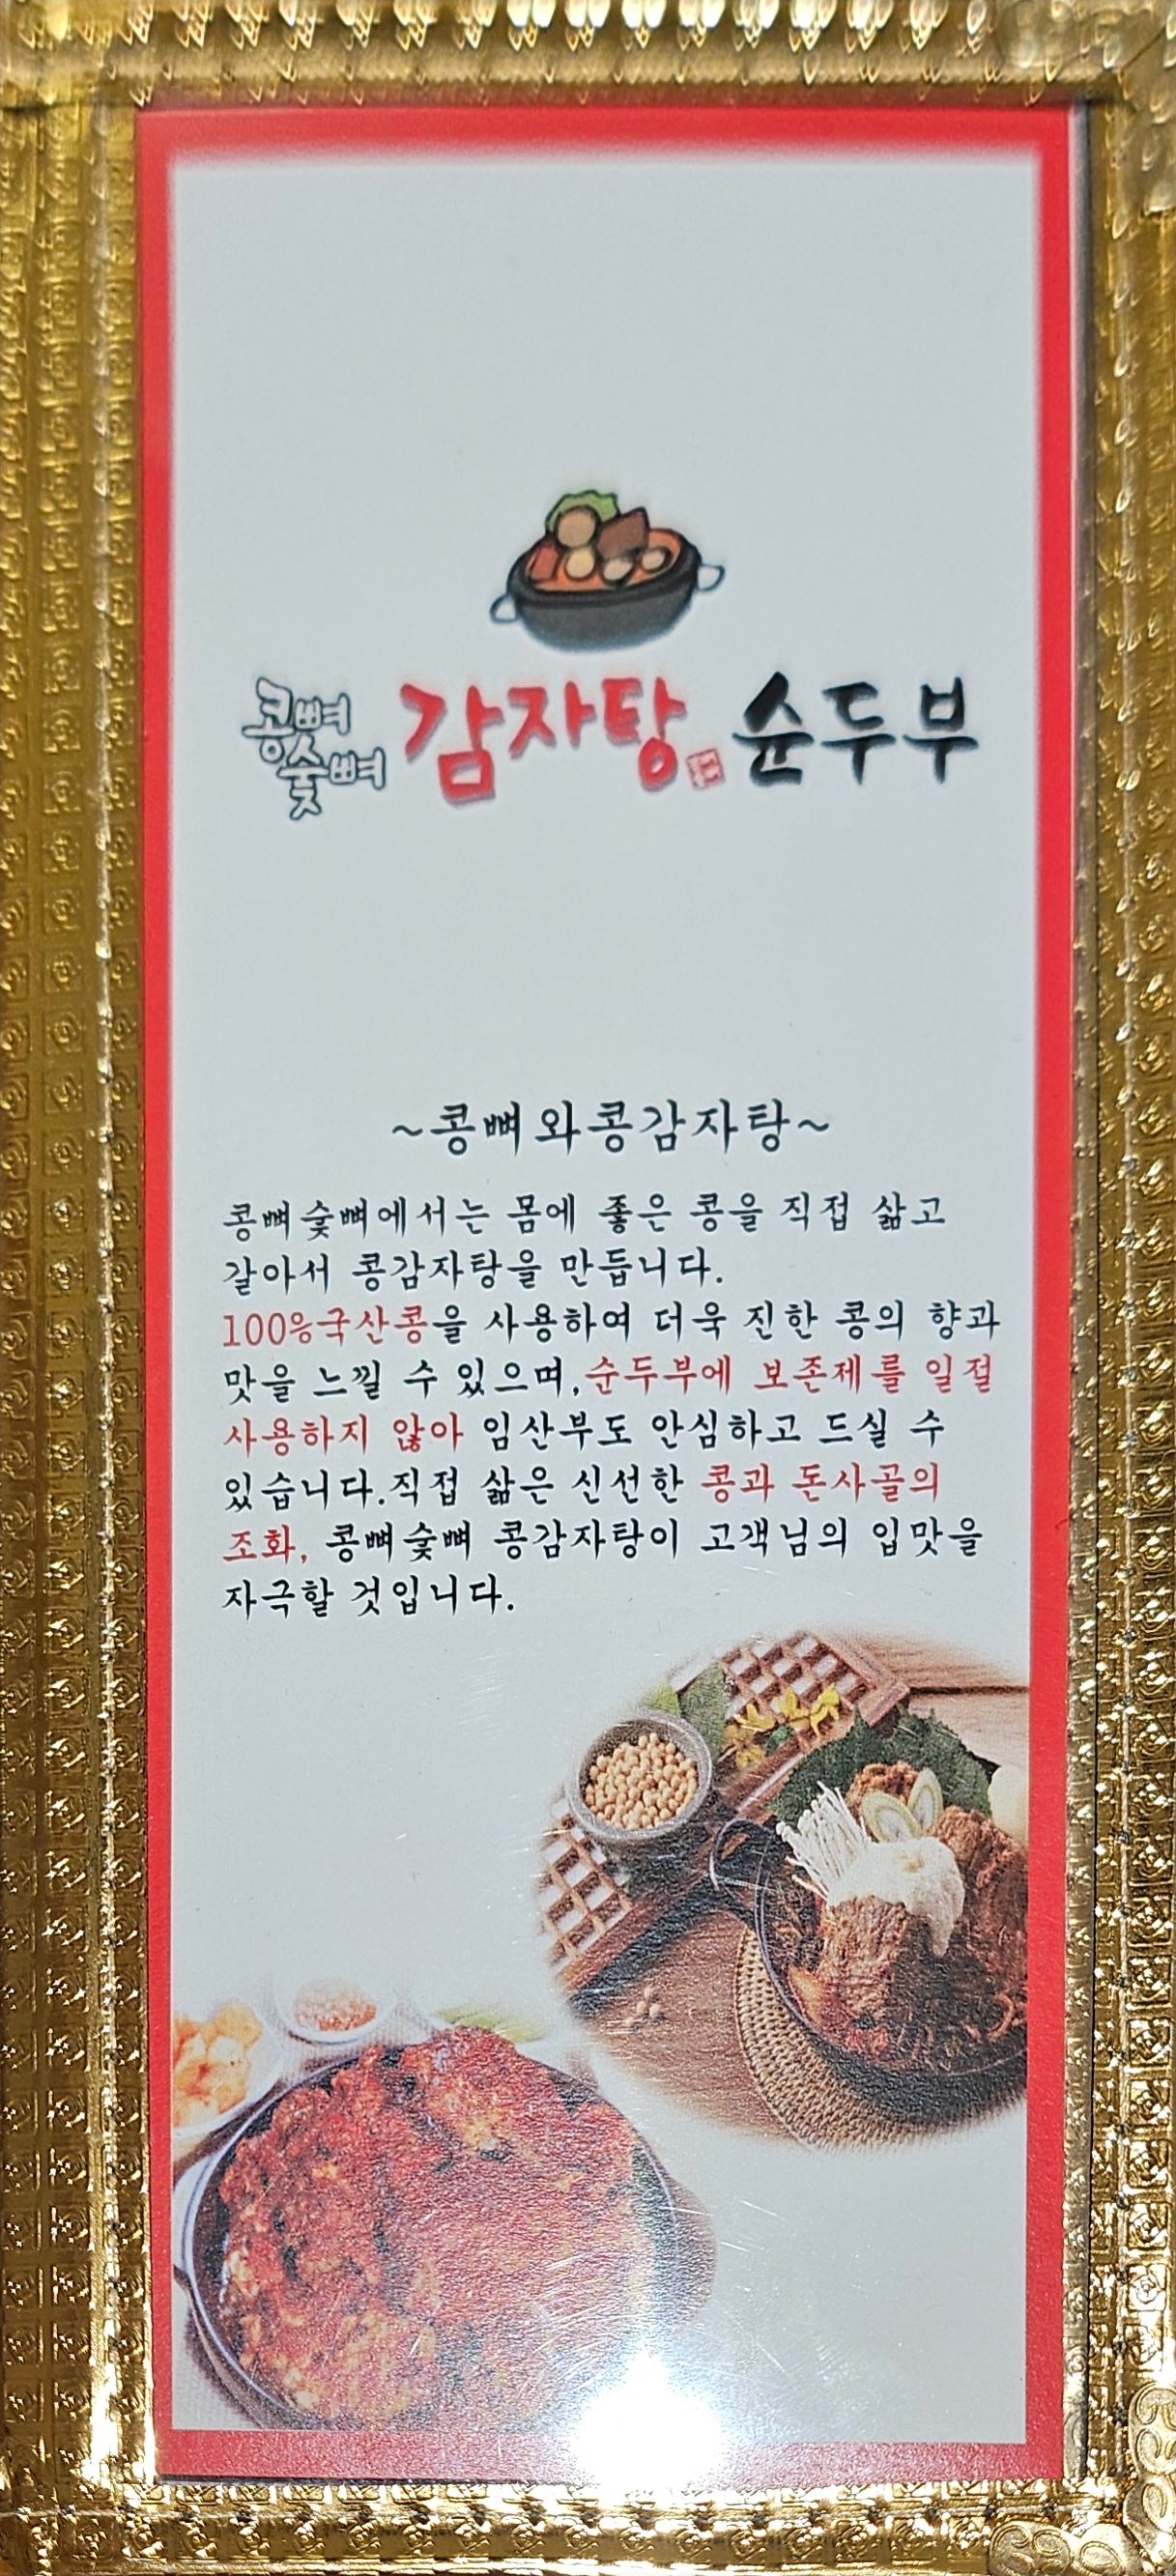 콩뼈
숯뼈
감자탕 순두부
~콩뼈와콩감자탕~
콩뼈숯뼈에서는 몸에 좋은 콩을 직접 삶고
갈아서 콩감자탕을 만듭니다.
100%국산콩을 사용하여 더욱 진한 콩의 향과
맛을 느낄 수 있으며,순두부에 보존제를 일절
사용하지 않아 임산부도 안심하고 드실 수
있습니다.직접 삶은 신선한 콩과 돈사골의
조화, 콩뼈숯뼈 콩감자탕이 고객님의 입맛을
자극할 것입니다.